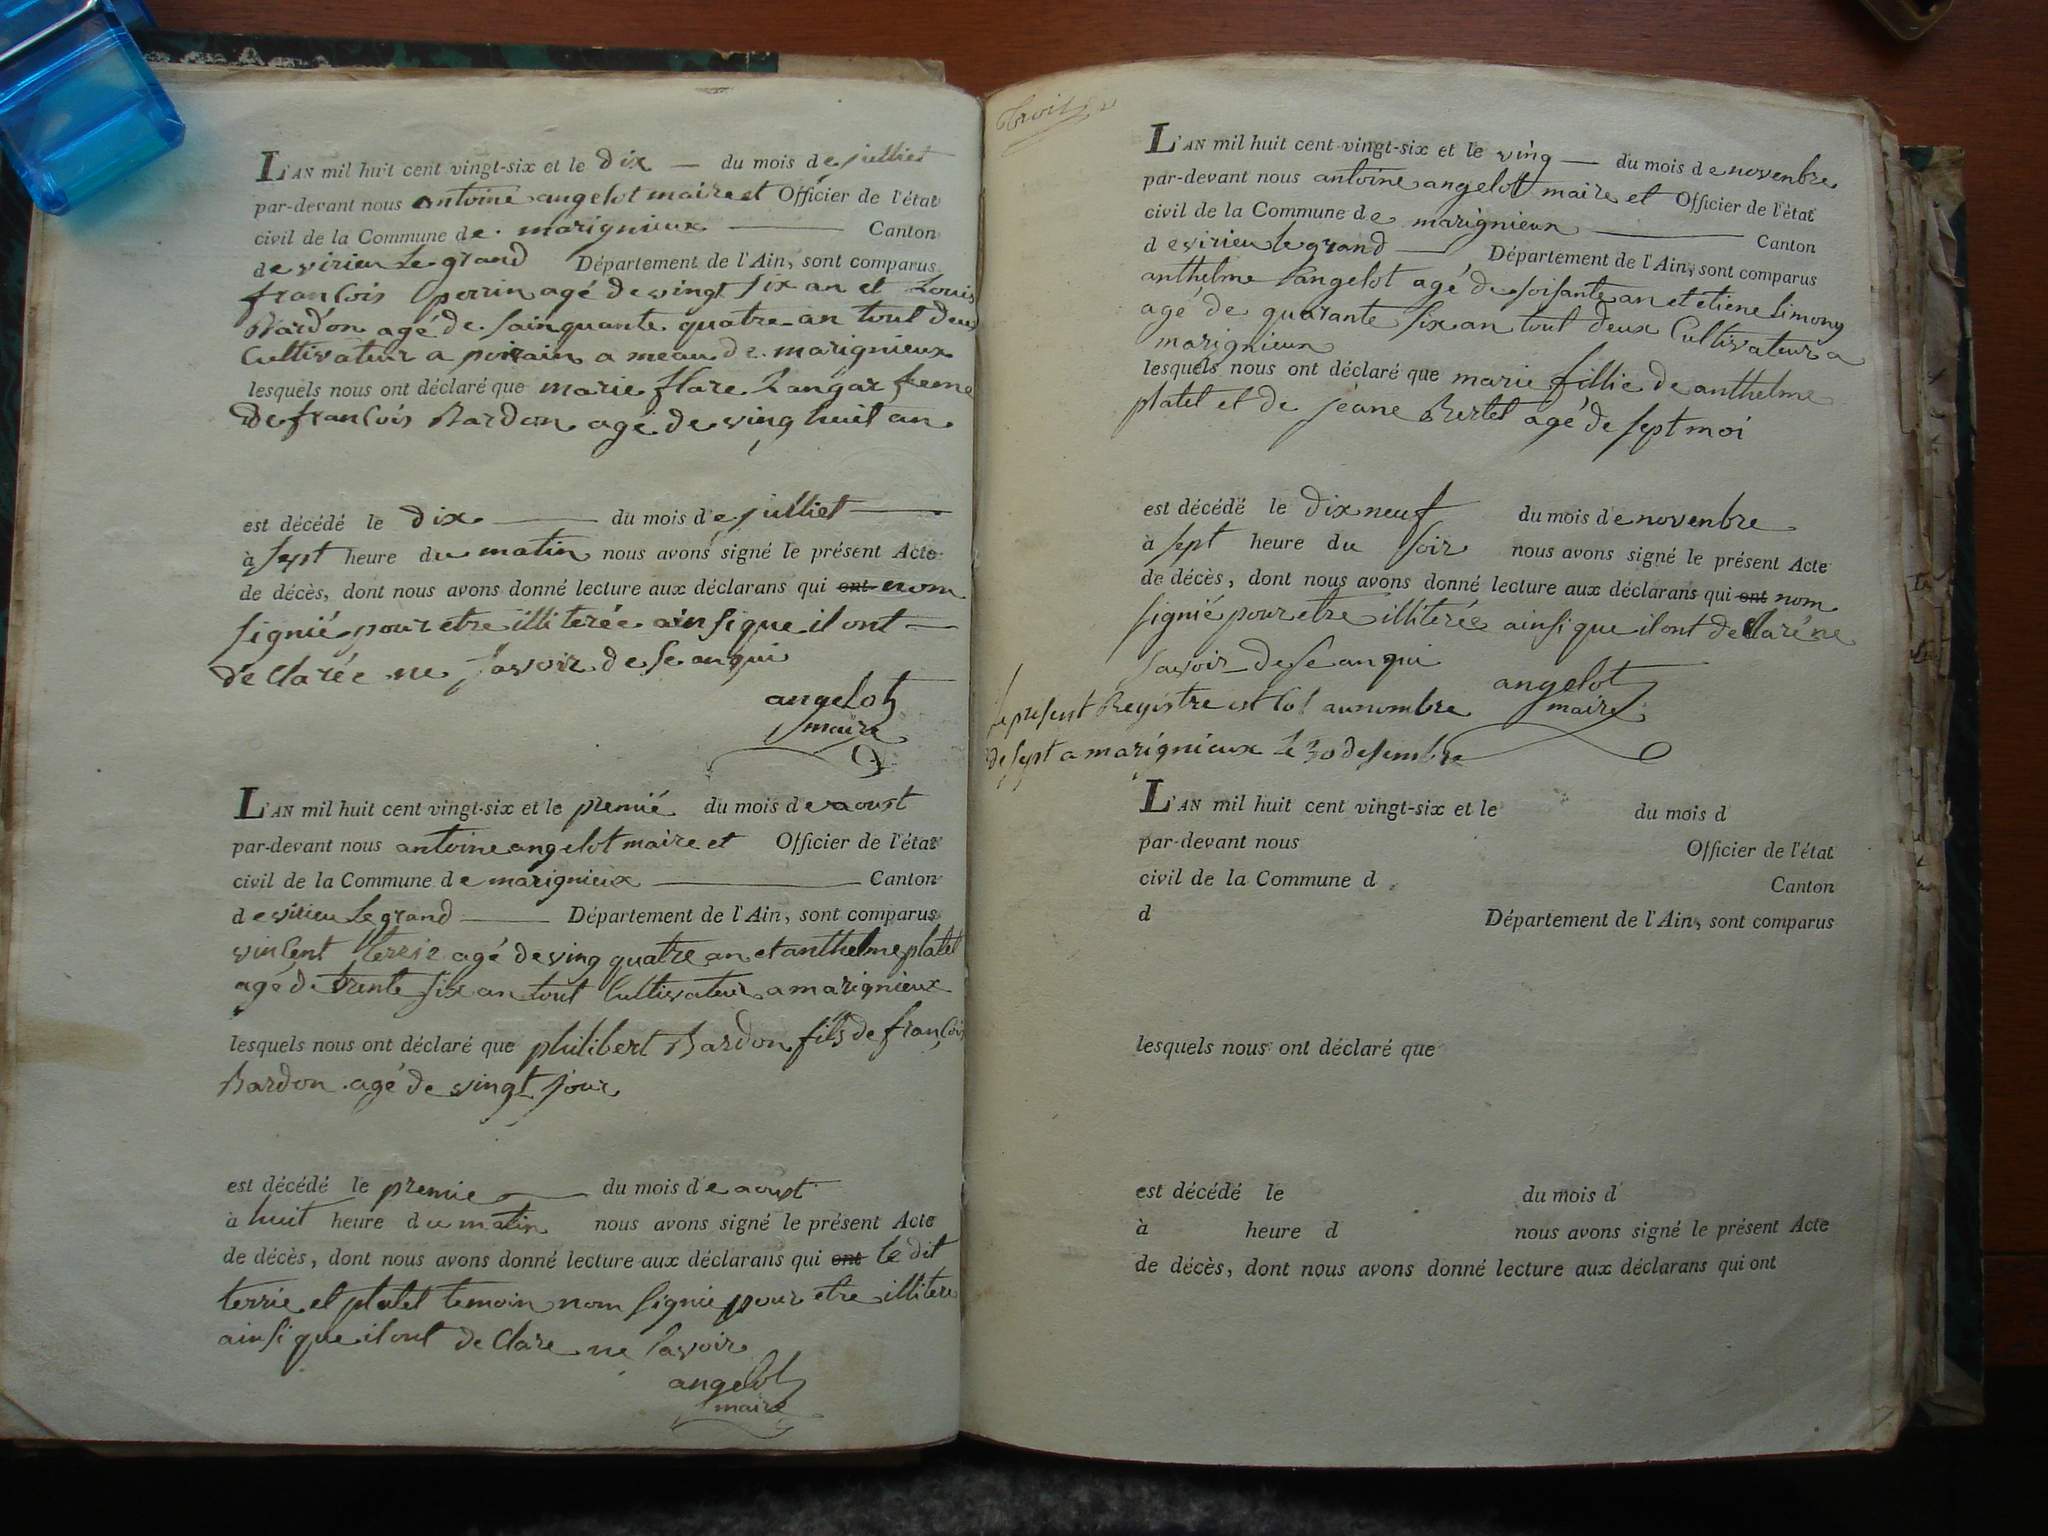 L'AN mil huit cent vingt-six et le dix — du mois de julliet
par-devant nous antoine angelot maire et Officier de l'état
civil de la Commune de marignieux — Canton
de virieu le grand Département de l'Ain, sont comparus
francois perrin agé de vingt six an et Louis
Bardon agé de sainquante quatre an tout deux
Cultivateur a poirain a meau de marignieux
lesquels nous ont déclaré que marie flare Langar feme
De francois Bardon agé de ving huit an
est décédé le dix — du mois de julliet —
à sept heure du matin nous avons signé le présent Acte
de décès, dont nous avons donné lecture aux déclarans qui ont nom
signié pour etre illiterée ainsi que il ont —
déClarée ne savoir de se anqui
angelot
maire
L'AN mil huit cent vingt-six et le premié du mois de aoust
par-devant nous antoine angelot maire et Officier de l'état
civil de la Commune de marignieux — Canton
de virieu le grand — Département de l'Ain, sont comparus
vincent terrie agé de ving quatre an et anthelme platel
agé de trente six an tout Cultivateur a marignieux
lesquels nous ont déclaré que philibert Bardon fils de francois
Bardon agé de vingt jour
est décédé le premie — du mois de aoust
à huit heure du matin nous avons signé le présent Acte
de décès, dont nous avons donné lecture aux déclarans qui ont le dit
terrie et platel temoin nom signie pour etre illitere
ainsi que il ont de Clare ne savoir
angelot
maire
Trois
L'AN mil huit cent vingt-six et le ving — du mois de novenbre
par-devant nous antoine angelot maire et Officier de l'état
civil de la Commune de marignieux — Canton
de virieu le grand — Département de l'Ain, sont comparus
anthelme angelot agé de soisante an et etiene simony
agé de quarante six an tout deux Cultivateur a
marignieux
lesquels nous ont déclaré que marie fillie de anthelme
platel et de jeane Bertet agé de sept moi
est décédé le dix neuf du mois de novenbre
à sept heure du soir nous avons signé le présent Acte
de décès, dont nous avons donné lecture aux déclarans qui ont nom
signié pour etre illiterée ainsi que il ont declaré ne
savoir de se anqui
angelot
maire
le present Registre est Clos au nombre
de sept a marignieux le 30 desembre
L'AN mil huit cent vingt-six et le du mois d
par-devant nous Officier de l'état
civil de la Commune d Canton
d Département de l'Ain, sont comparus
lesquels nous ont déclaré que
est décédé le du mois d
à heure d nous avons signé le présent Acte
de décès, dont nous avons donné lecture aux déclarans qui ont